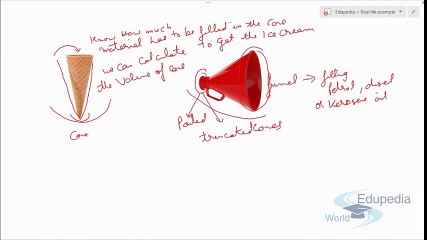 Edupedia > Real life example
Know How much
material has to be filled in the cone
to get the Ice cream
we can calculate
the volume of cone
Cone
funnel → filling
Petrol, diesel
or kerosene oil
truncated cones
Edupedia
World